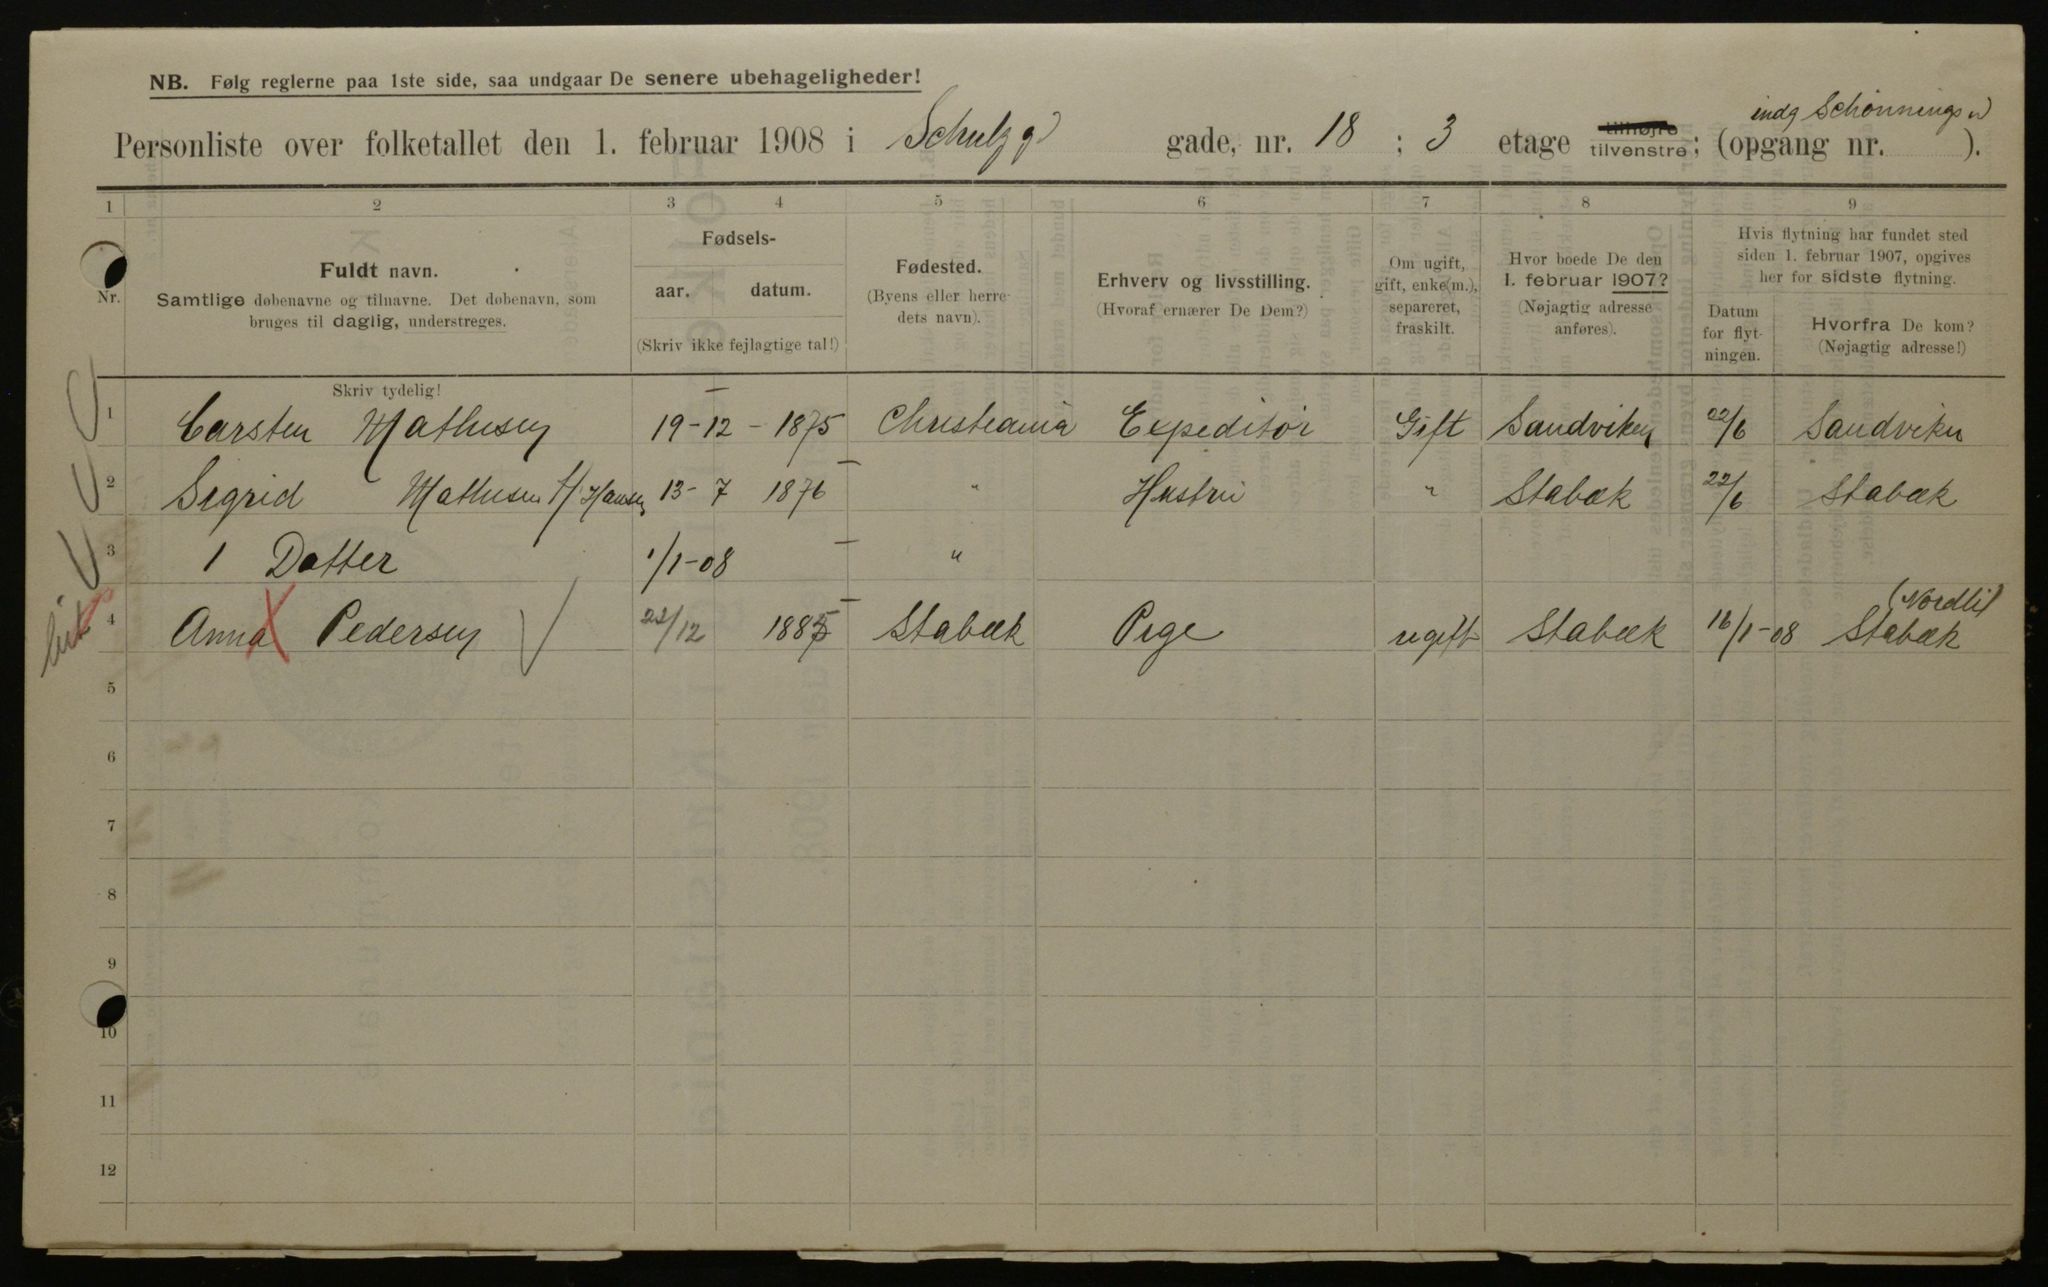 NB. Følg reglerne paa 1ste side, saa undgaar De senere ubehageligheder!
indg Schønnings
Personliste over folketallet den 1. februar 1908 i Schulzg gade, nr. 18 ; 3 etage tilhøjre tilvenstre; (opgang nr. ).
1 2 3 4 5 6 7 8 9
Nr.
Fuldt navn.
Samtlige døbenavne og tilnavne. Det døbenavn, som
bruges til daglig, understreges.
Skriv tydelig!
Fødsels-
aar. datum.
(Skriv ikke fejlagtige tal!)
Fødested.
(Byens eller herre-
dets navn).
Erhverv og livsstilling.
(Hvoraf ernærer De Dem?)
Om ugift,
gift, enke(m.),
separeret,
fraskilt.
Hvor boede De den
1. februar 1907?
(Nøjagtig adresse
anføres).
Hvis flytning har fundet sted
siden 1. februar 1907, opgives
her for sidste flytning.
Datum
for flyt-
ningen.
Hvorfra De kom?
(Nøjagtig adresse!)
1 Carsten Mathiesen 19-12-1875 Christiania Expeditør Gift Sandviken 22/6 Sandviken
2 Sigrid Mathiesen f. Hansen 13-7 1876 " Hustru " Stabæk 22/6 Stabæk
3 1 Datter 1/1-08 "
4 Anna Pedersen 22/12 1885 Stabæk Pige ugift Stabæk 16/1-08 Stabæk (Nordli)
5
6
7
8
9
10
11
12